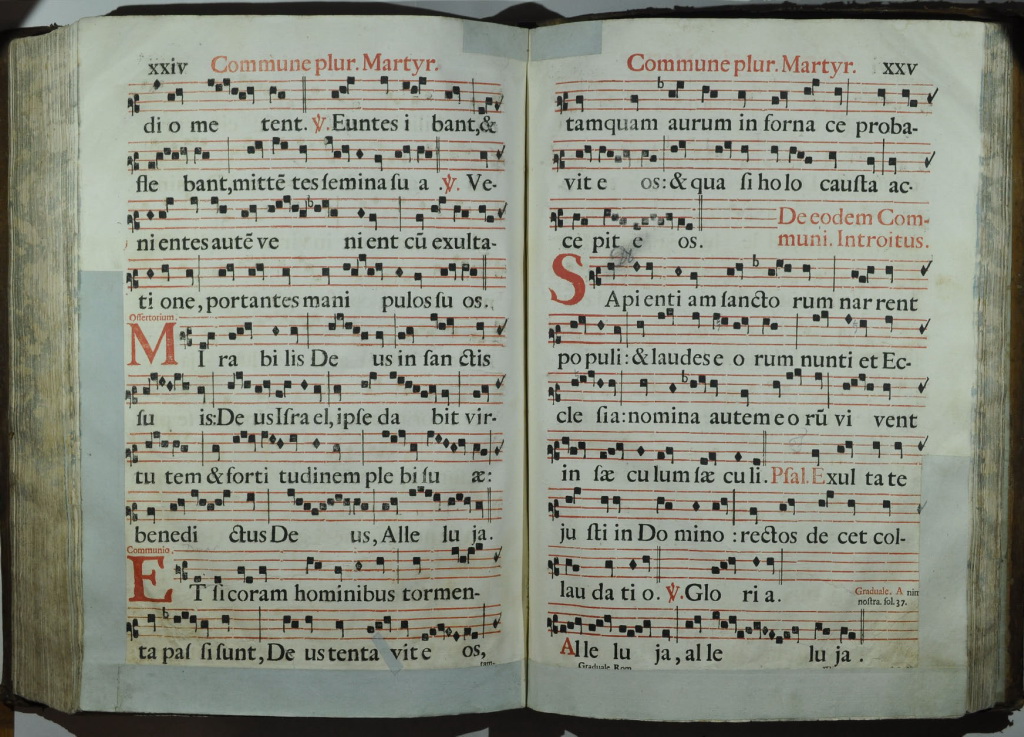 xxiv Commune plur. Martyr.
di o me tent. ℣. Euntes i bant,&
fle bant,mittē tes semina su a .℣. Ve-
ni entes autē ve ni ent cū exulta-
ti one, portantes mani pulos su os.
Offertorium.
MI ra bi lis De us in san ctis
su is:De us Isra el, ipse da bit vir-
tu tem & forti tudinem ple bi su æ:
benedi ctus De us, Alle lu ja.
Communio.
ET si coram hominibus tormen-
ta pas si sunt, De us tenta vit e os,
tam-
Commune plur. Martyr. xxv
tamquam aurum in forna ce proba-
vit e os: & qua si ho lo causta ac-
ce pit e os.
De eodem Com-
muni. Introitus.
SApi enti am sancto rum nar rent
po pu li: & laudes e o rum nunti et Ec-
cle sia: nomina autem e o rū vi vent
in sæ cu lum sæ cu li. Psal. Exul ta te
ju sti in Do mino : rectos de cet col-
lau da ti o. ℣. Glo ri a.
Graduale. A nim
nostra. fol. 37.
Alle lu ja, al le lu ja .
Graduale Rom.